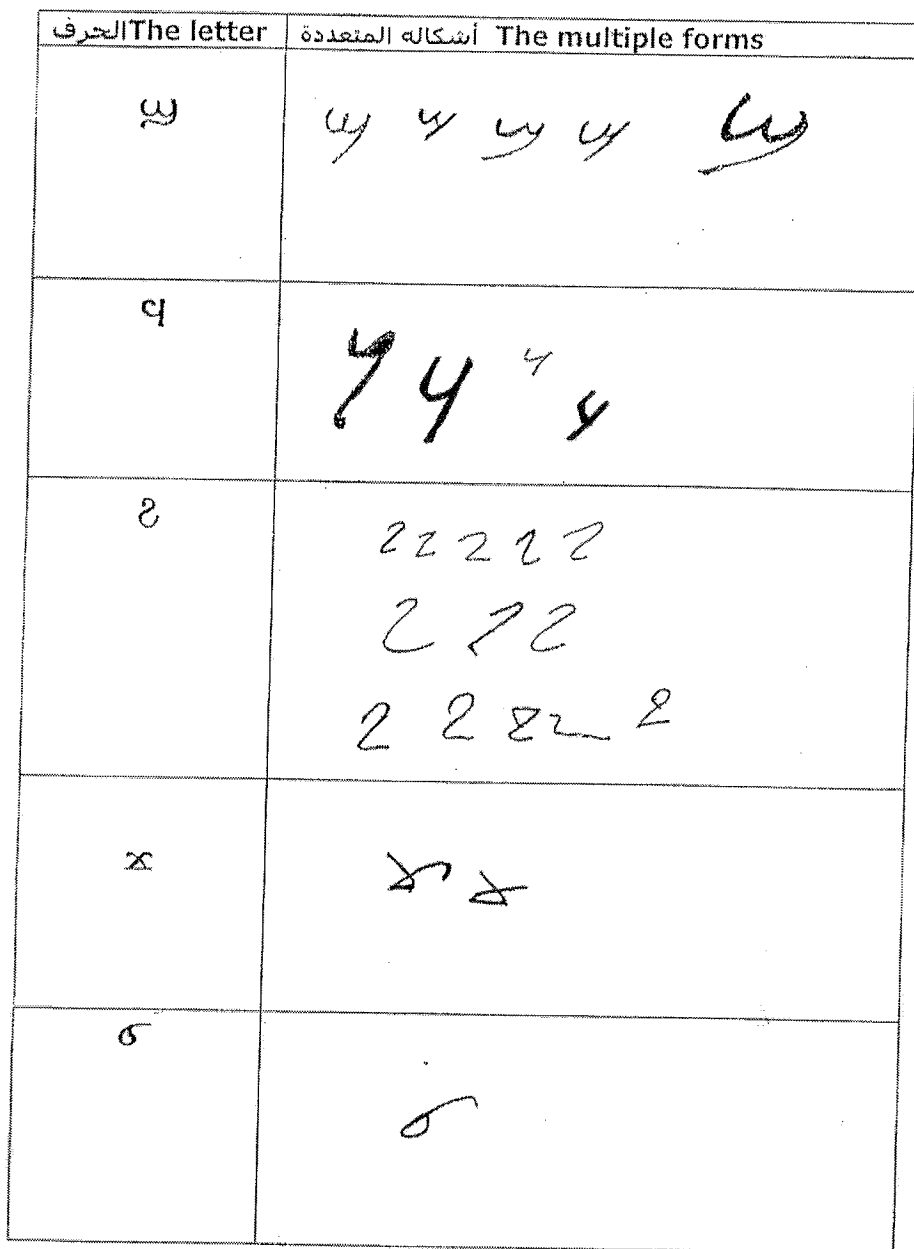 الحرف The letter أشكاله المتعددة The multiple forms
ϣ ϣ ϣ ϣ ϣ ϣ
ϥ ϥ ϥ ϥ ϥ
ϩ ϩ ϩ ϩ ϩ ϩ
ϩ ϩ ϩ
ϩ ϩ ϩ ϩ ϩ
ϫ ϫ ϫ
ϭ ϭ